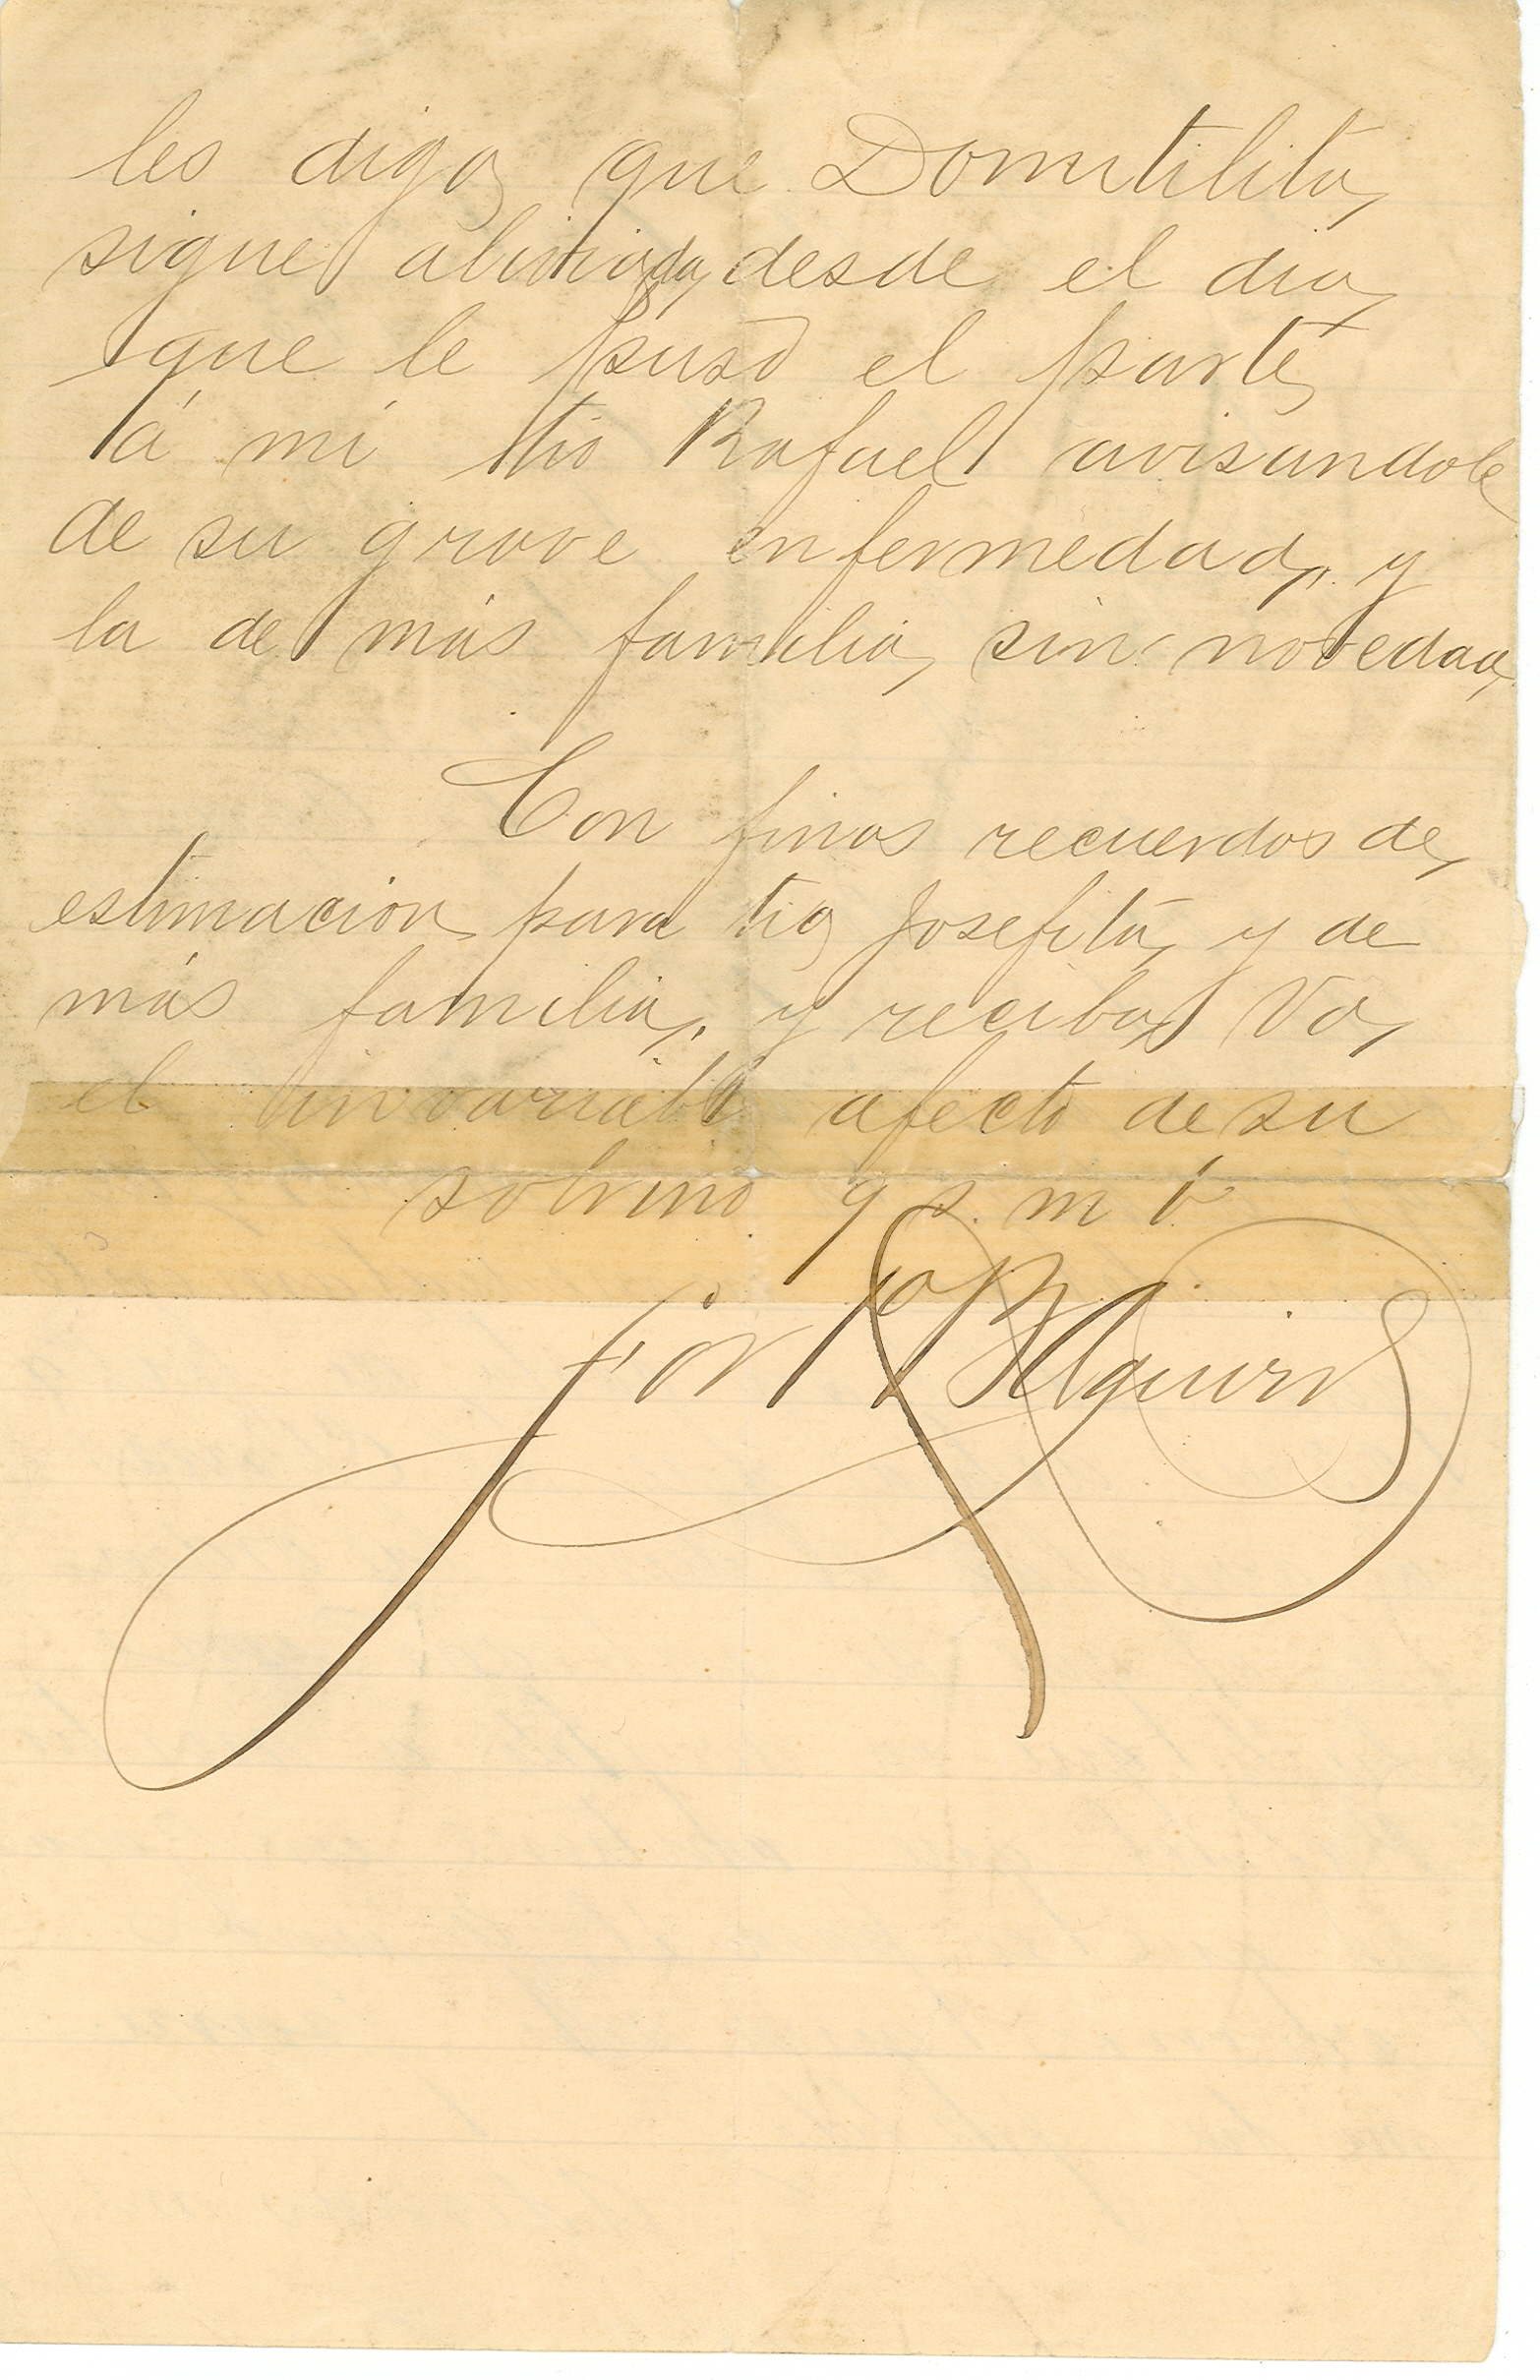 les diga que Domitilita,
sigue aliviada, desde el dia,
que le puso el parte,
á mi tio Rafael avisandole
de su grave enfermedad, y
la de más familia, sin novedad,
Con finos recuerdos de,
estimacion para tia Josefita, y de
más familia, y reciba Vd,
el invariable afecto de su
sobrino q s. m b
Aguirre